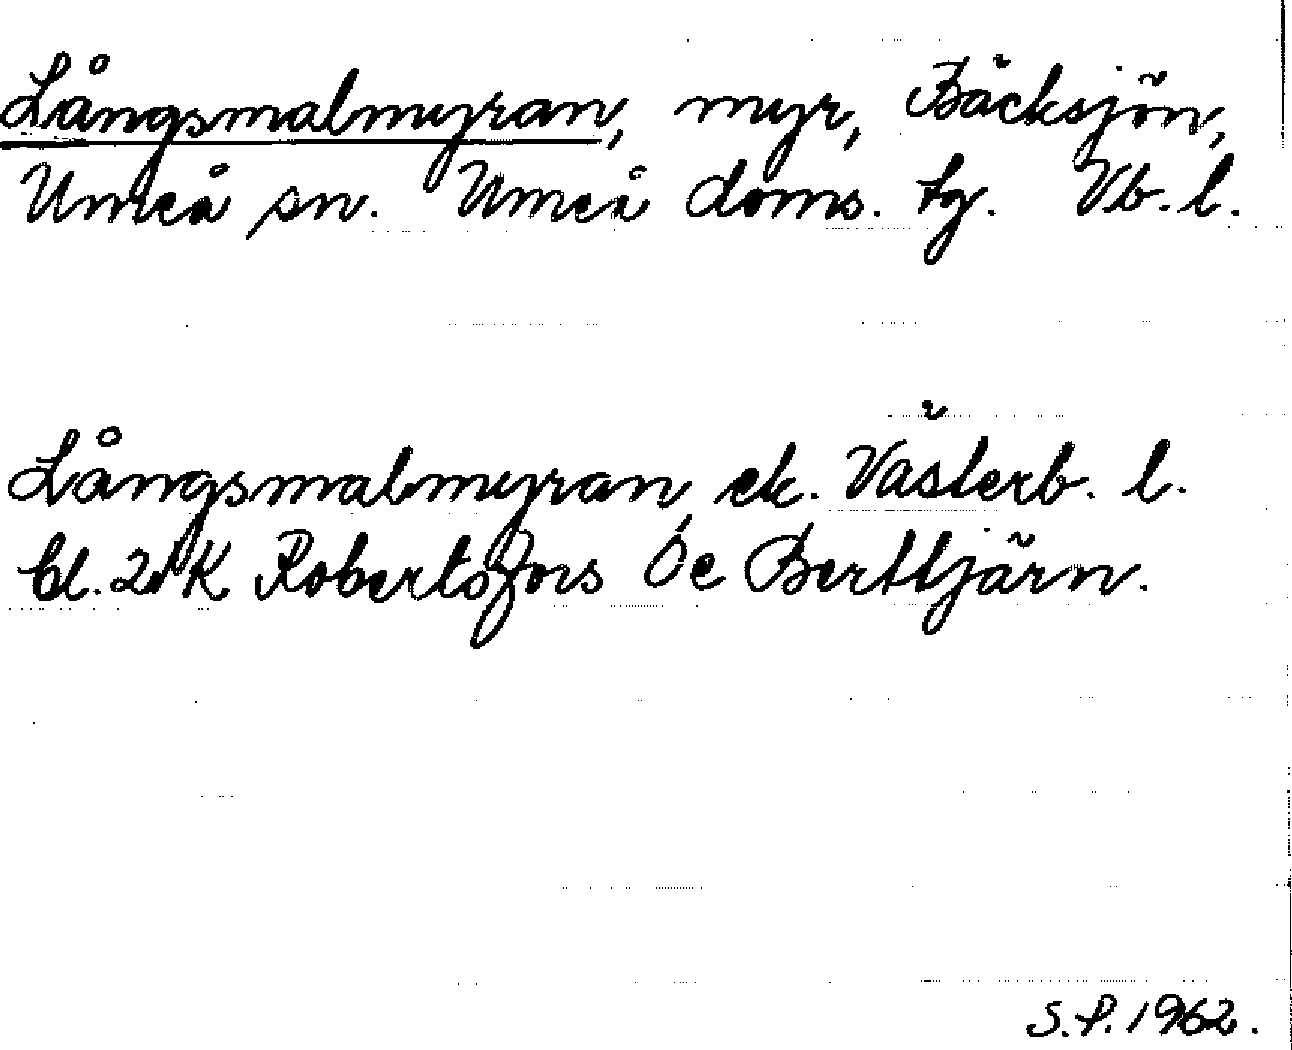 Långsmalmyran, myr, Bäcksjön,
Umeå sn. Umeå doms. tg. Vb. l.
Långsmalmyran, ek. Västerb. l.
bl. 21 K Robertsfors Öe Berttjärn.
S.P. 1962.